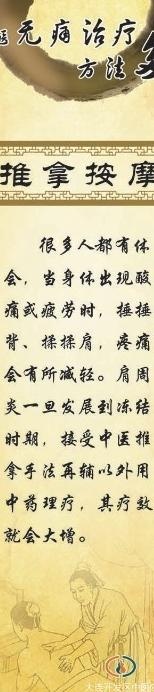 无痛治疗
方法
推拿按摩
很多人都有体
会，当身体出现酸
痛或疲劳时，捶捶
背、揉揉肩，疼痛
会有所减轻。肩周
炎一旦发展到冻结
时期，接受中医推
拿手法再辅以外用
中药理疗，其疗效
就会大增。